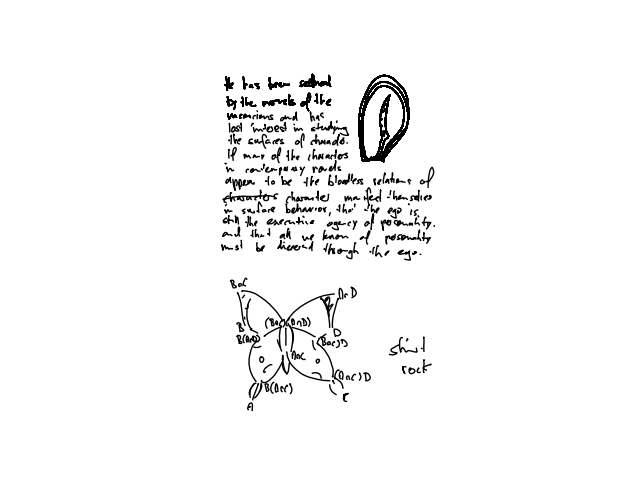 He has been seduced
by the novels of the
and has
lost interest in studying
the surfaces of character.
If many of the characters
in contemporary novels
appear to be the bloodless relations of
characters character manifest themselves
in surface behavior, that the ego is
still the executive agency of personality,
and that all we know of personality
must be discerned through the ego.
BoC
AnD
B
D
(BoC)(AnD)
B(AnD)
(BoC)D
AnC
O
O
B(AnC)
(AnC)D
A
C
rock